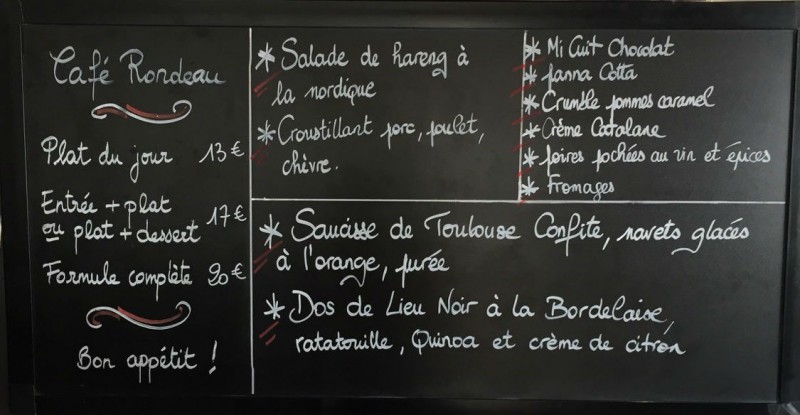 Café Rondeau
Plat du jour 13€
Entrée + plat
ou plat + dessert 17€
Formule complète 20€
Bon appétit !
* Salade de hareng à
la nordique
* Croustillant porc, poulet,
chèvre.
* Mi Cuit Chocolat
* Panna Cotta
* Crumble pommes caramel
* Crème Catalane
* Poires pochées au vin et épices
* Fromages
* Saucisse de Toulouse Confite, navets glacés
à l'orange, purée
* Dos de Lieu Noir à la Bordelaise,
ratatouille, Quinoa et crème de citron